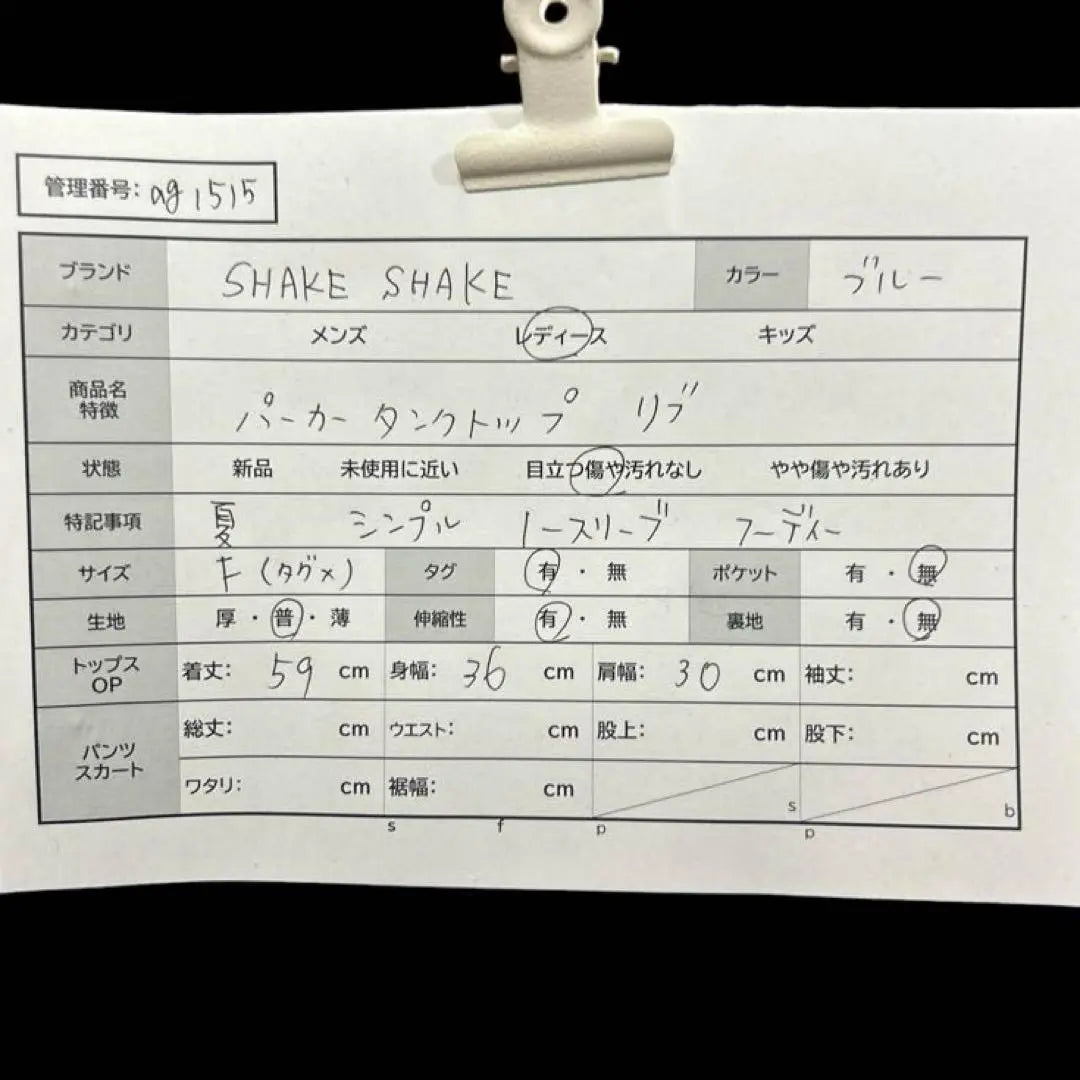 管理番号: ag1515
ブランド SHAKE SHAKE カラー ブルー
カテゴリ メンズ レディース キッズ
商品名 特徴 パーカー タンクトップ リブ
状態 新品 未使用に近い 目立つ傷や汚れなし やや傷や汚れあり
特記事項 夏 シンプル ノースリーブ フーディー
サイズ F (タグ×) タグ 有・無 ポケット 有・無
生地 厚・普・薄 伸縮性 有・無 裏地 有・無
トップス OP 着丈: 59 cm 身幅: 36 cm 肩幅: 30 cm 袖丈: cm
パンツ スカート 総丈: cm ウエスト: cm 股上: cm 股下: cm
ワタリ: cm 裾幅: cm s b
s f p p